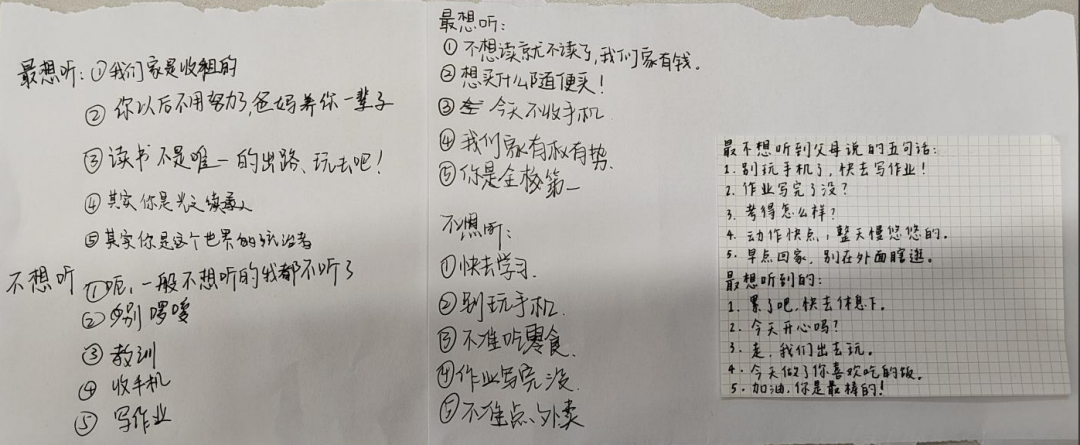 最想听:①我们家是收租的
②你以后不用努力了,爸妈养你一辈子
③读书不是唯一的出路、玩去吧!
④其实你是光之继承人
⑤其实你是这个世界的统治者
不想听 ①呃,一般不想听的我都不听了
②别啰嗦
③教训
④收手机
⑤写作业
最想听:
①不想读就不读了,我们家有钱。
②想买什么随便买!
③今天不收手机
④我们家有权有势.
⑤你是全校第一
不想听:
①快去学习.
②别玩手机.
③不准吃零食.
④作业写完没.
⑤不准点外卖
最不想听到父母说的五句话:
1.别玩手机了,快去写作业!
2.作业写完了没?
3.考得怎么样?
4.动作快点,整天慢悠悠的。
5.早点回家,别在外面瞎逛。
最想听到的:
1.累了吧,快去休息下。
2.今天开心吗?
3.走,我们出去玩。
4.今天做了你喜欢吃的饭。
5.加油,你是最棒的!